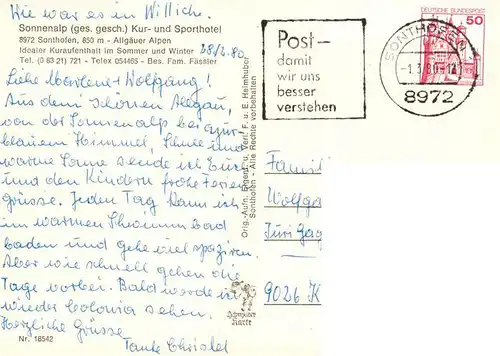 Wie war es in Willich.
Sonnenalp (ges. gesch.) Kur- und Sporthotel
8972 Sonthofen, 850 m - Allgäuer Alpen
Idealer Kuraufenthalt im Sommer und Winter
Tel. (0 83 21) 721 - Telex 054465 - Bes. Fam. Fässler
28/2.80
Liebe Marlene + Wolfgang!
Aus dem schönen Allgäu,
von der Sonnenalp bei azur-
blauem Himmel, Schnee und
warme Sonne sende ich Euch
und den Kindern frohe Ferien
Grüsse. Jeden Tag kann ich
im warmen Schwimmbad
baden und gehe viel spazieren.
Aber wie schnell gehen die
Tage vorbei. Bald werde ich
wieder Colonia sehen.
Herzliche Grüsse
Tante Christel
Nr. 18542
Orig.-Aufn. Eigent. u. Verl. F. u. E. Heimhuber
Sonthofen - Alle Rechte vorbehalten
Karte
Post-
damit
wir uns
besser
verstehen
SONTHOFEN
-1.3.80-12
8972
DEUTSCHE BUNDESPOST
50
Famili
Wolfga
9026 K